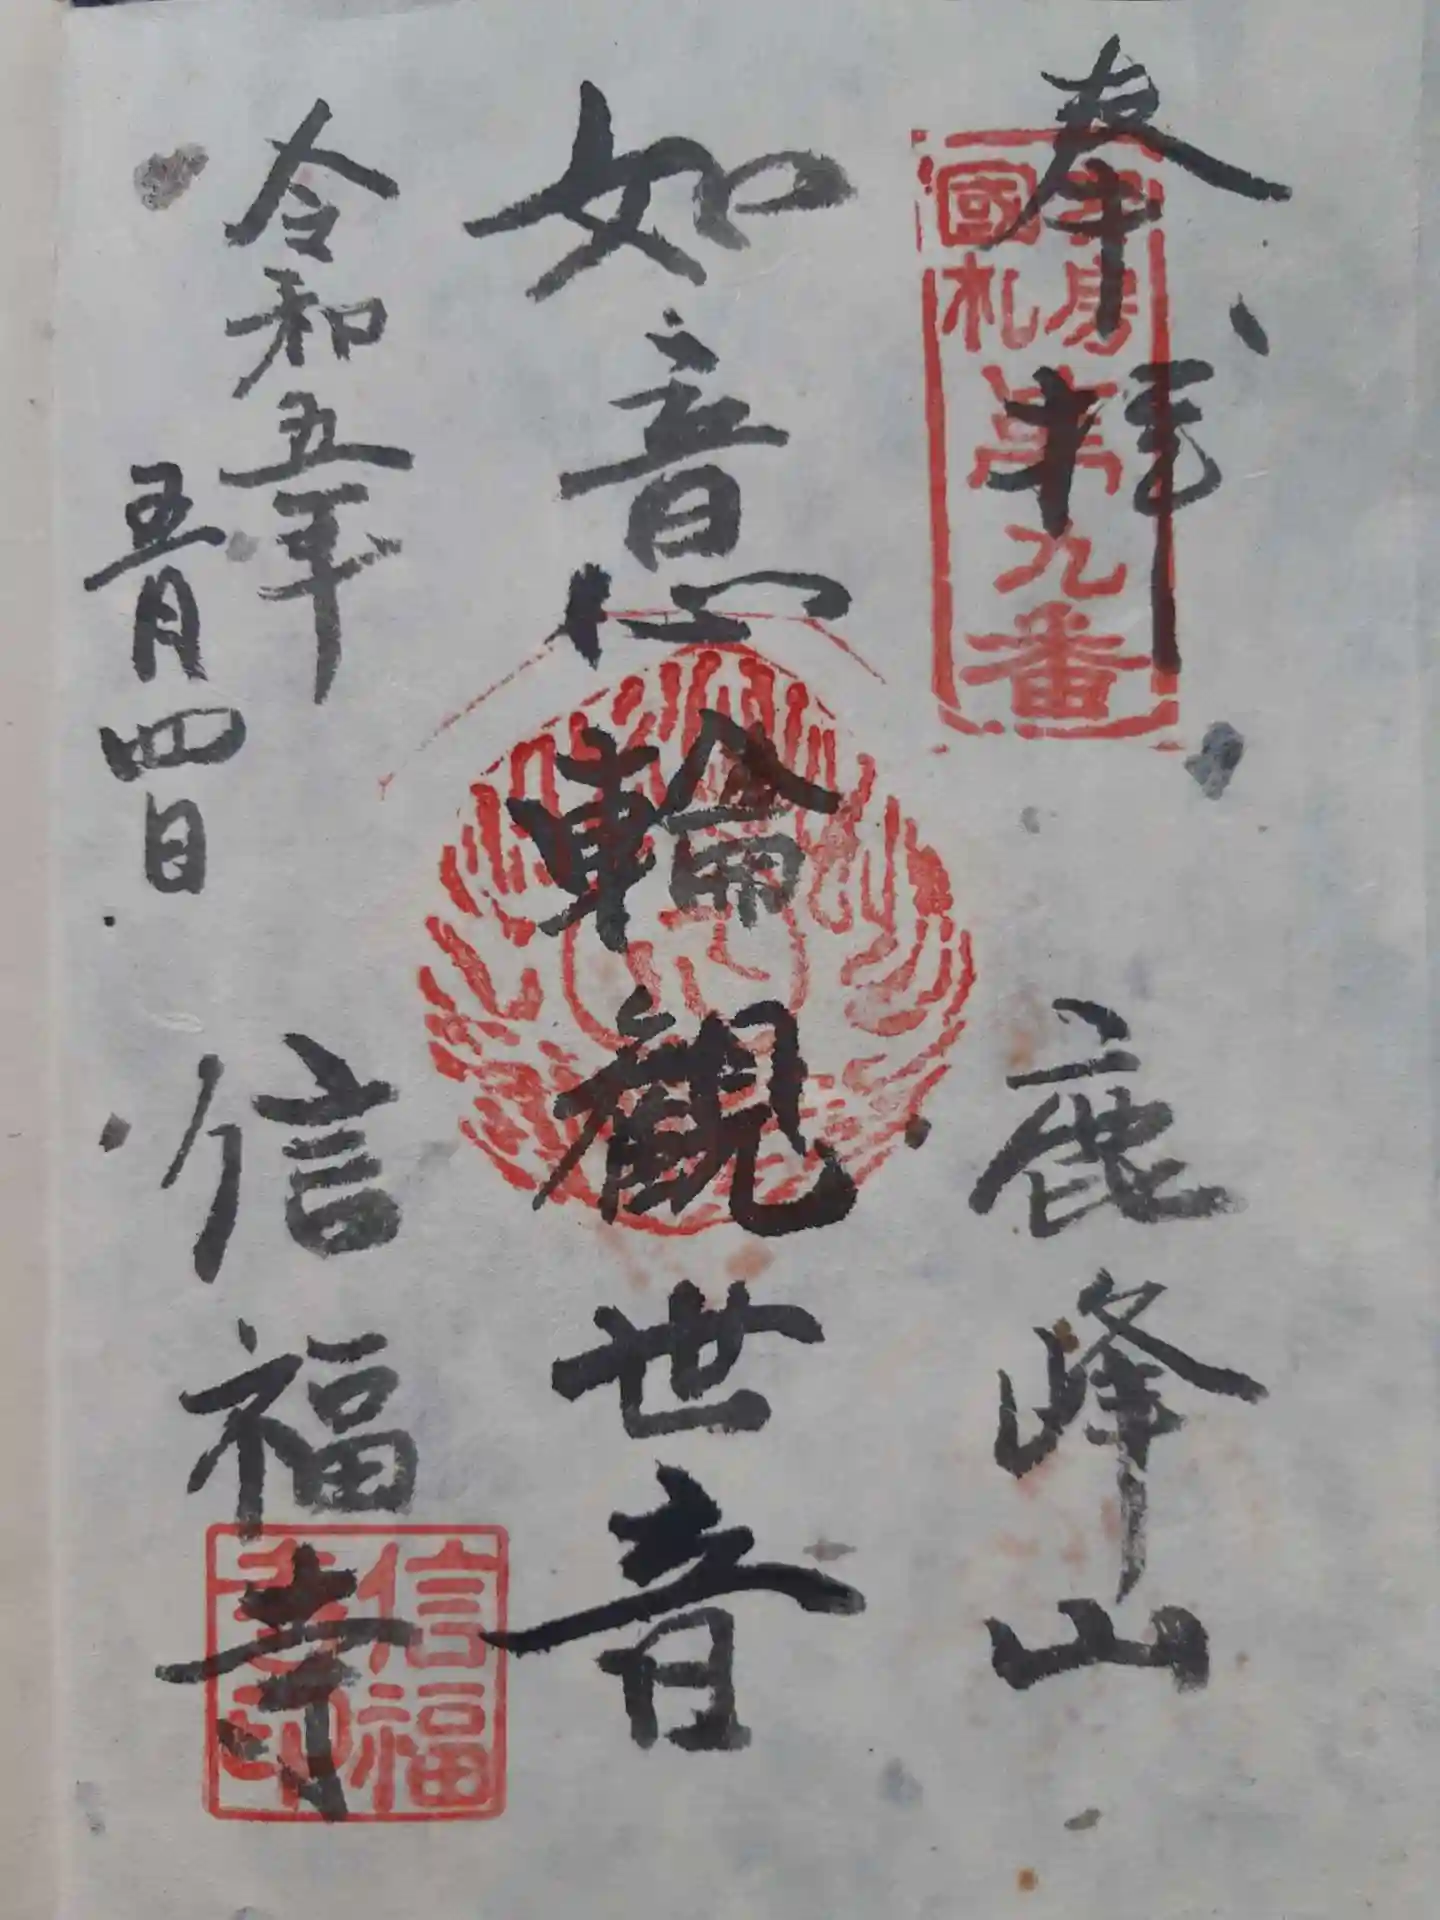 奉拝
安房國札第九番
鹿峰山
如意輪觀世音
令和五年
五月四日
信福寺
信福寺印